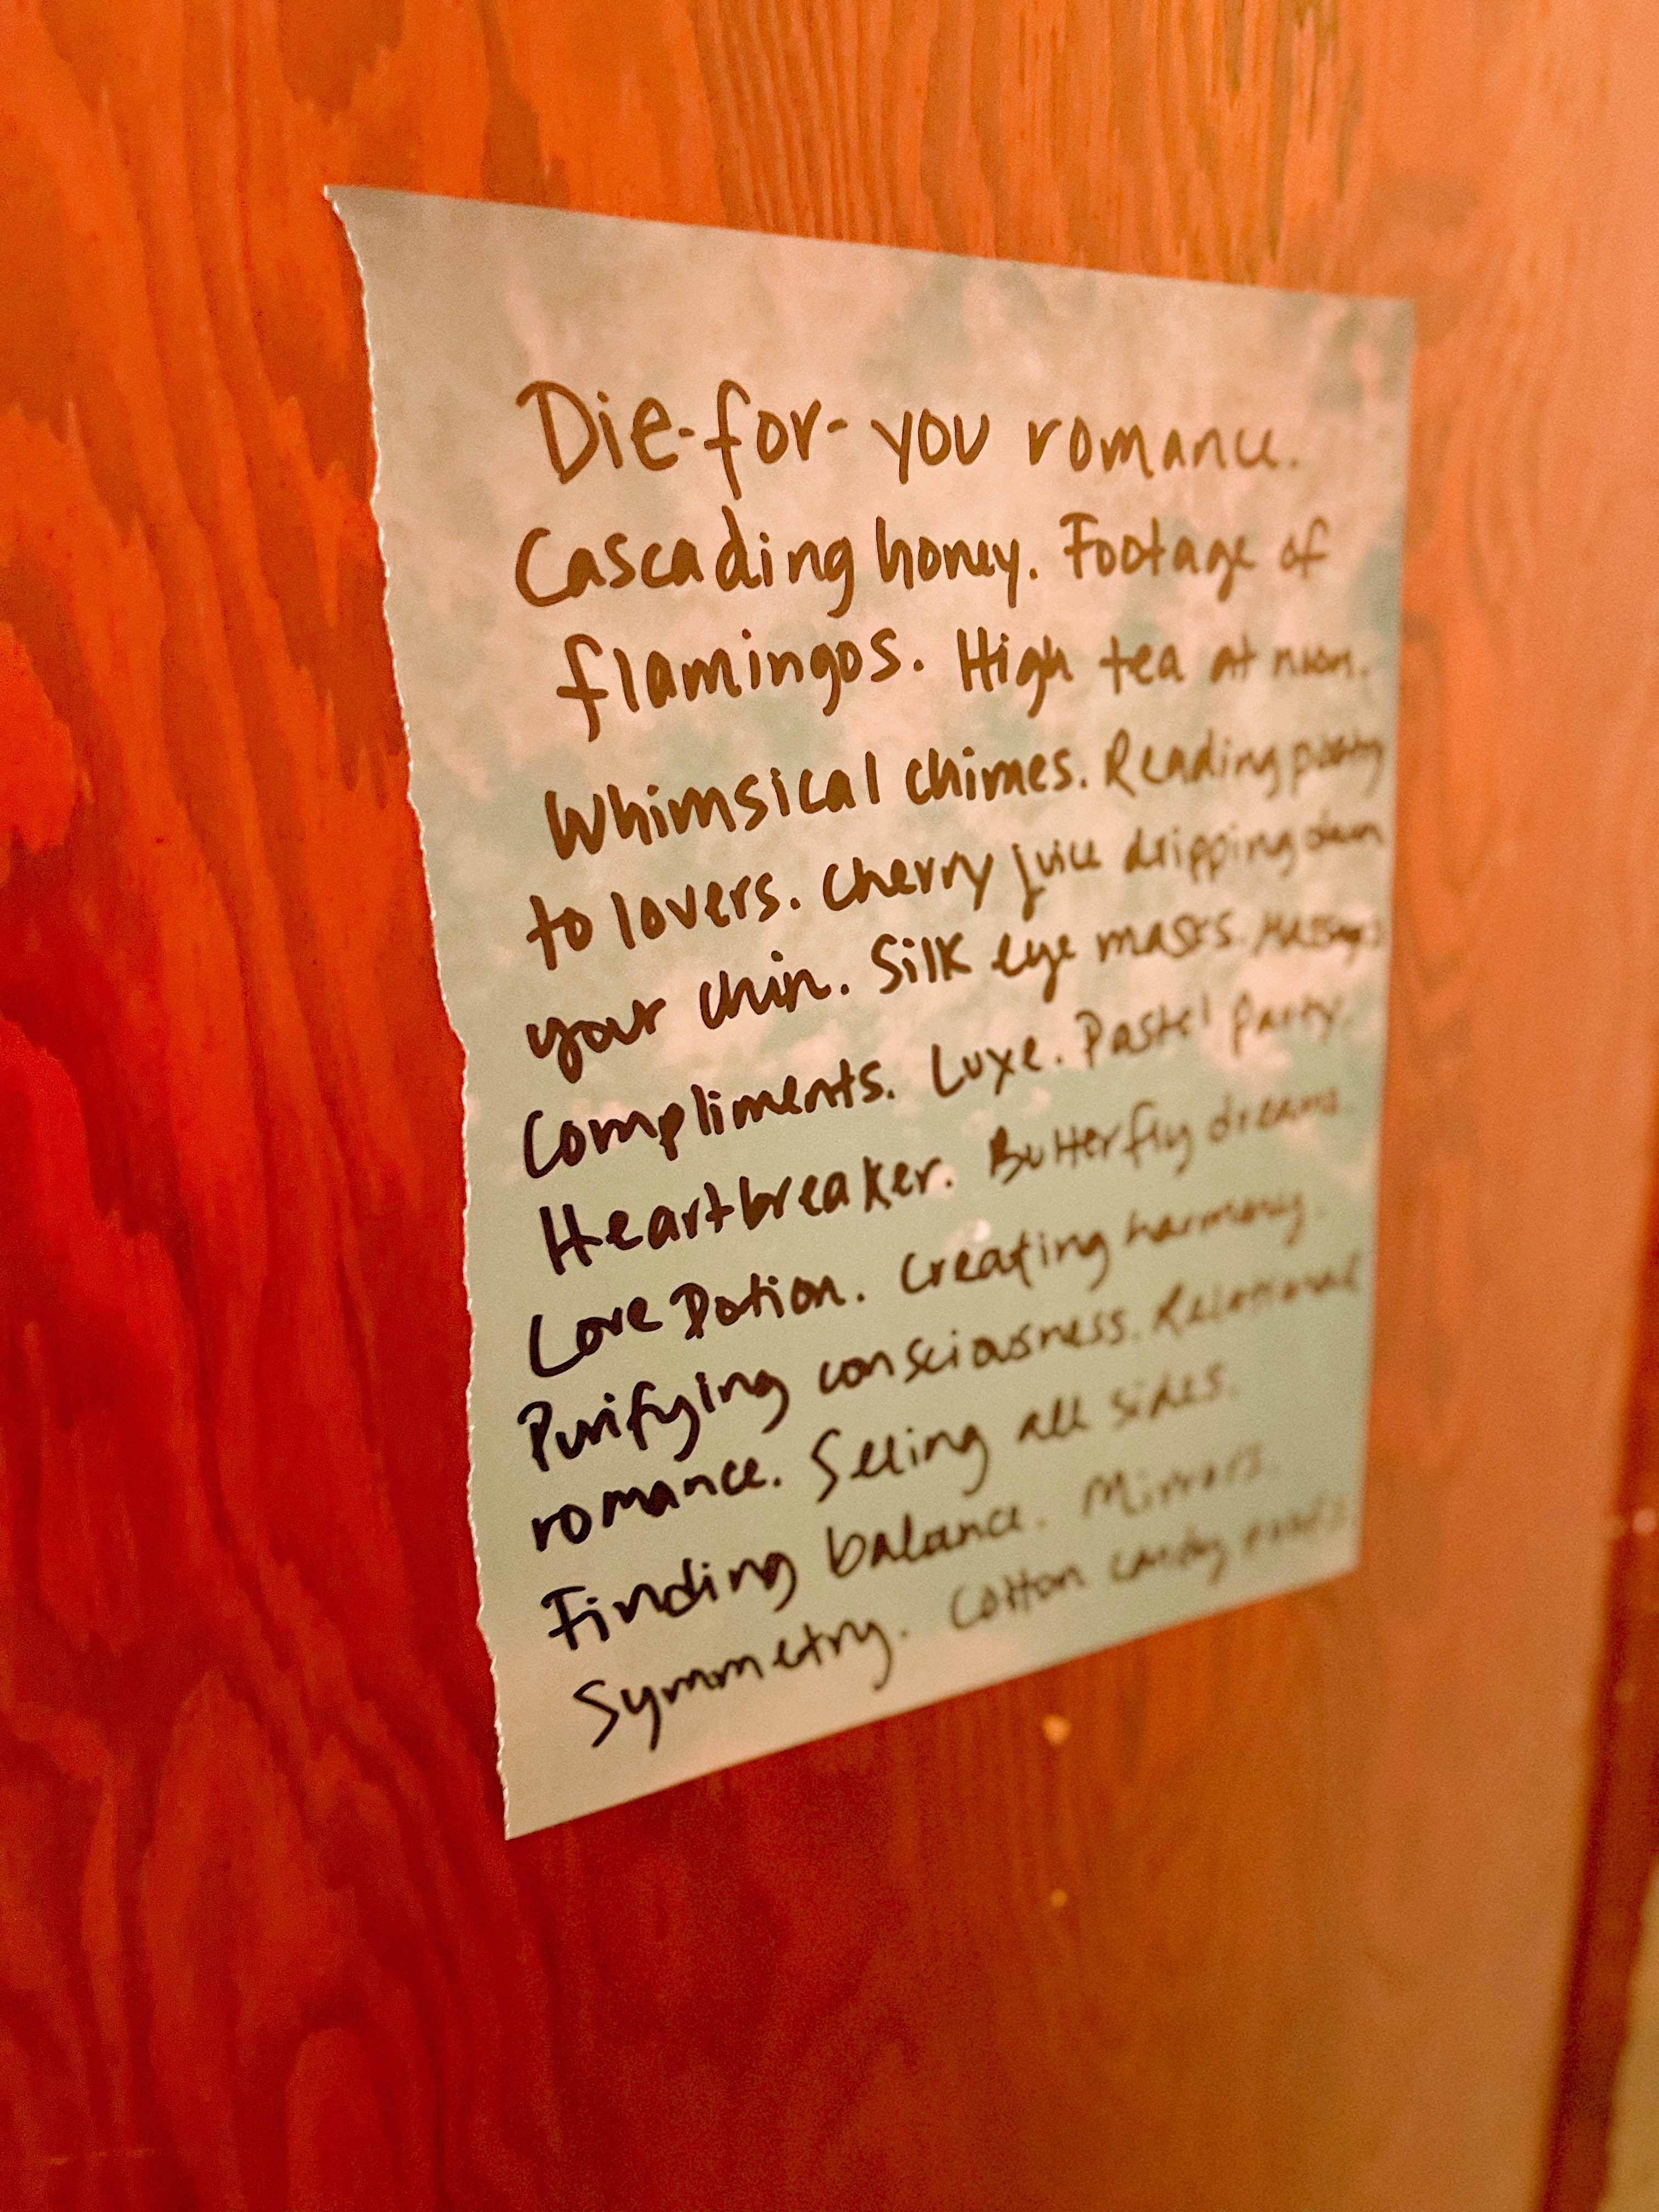 Die-for-you romance.
Cascading honey. Footage of
flamingos. High tea at noon.
Whimsical chimes. Reading poetry
to lovers. Cherry juice dripping down
your chin. Silk eye masks. Massages
Compliments. Luxe. Pastel party.
Heartbreaker. Butterfly dreams.
Love Potion. Creating harmony.
Purifying consciousness. Relational
romance. Seeing all sides.
Finding balance. Mirrors.
Symmetry. Cotton candy